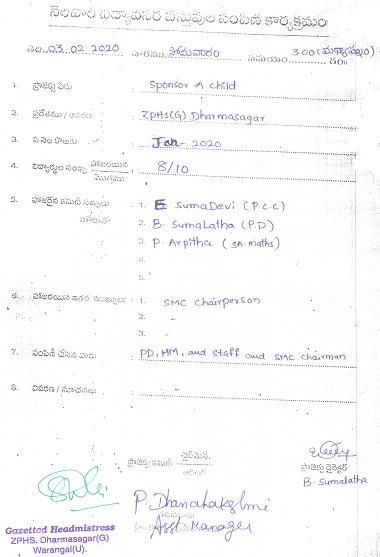 నెలవారీ విద్యావసర వస్తువుల పంపిణీ కార్యక్రమం
తేది. 03.02.2020 వారము సోమవారం సమయం 3.00 (మధ్యాహ్నం) గం॥
1. ప్రాజెక్టు పేరు : Sponsor A child
2. ప్రదేశము / : ZPHS(G) Dharmasagar
3. ఏ నెల కొరకు : Jan-2020
4. విద్యార్థుల సంఖ్య హాజరయిన / మొత్తము : 8/10
5. హాజరైన కమిటి సభ్యులు : 1. E SumaDevi (P.C.C)
2. B. SumaLatha (P.D)
3. P. Arpitha (SA. maths)
4.
5.
6. హాజరయిన ఇతర ముఖ్యులు : 1. SMC chairperson
2. -
3. -
7. పంపిణీ చేసిన వారు : PD, HM, and staff and SMC chairman
8. వివరణ / సూచనలు : -
ప్రాజెక్టు కమిటీ ఛైర్మెన్
ప్రాజెక్టు డైరెక్టర్
B. Sumalatha
P. Dhanalakshmi
Asst Manager
Gazetted Headmistress
ZPHS. Dharmasagar(G)
Warangal(U).